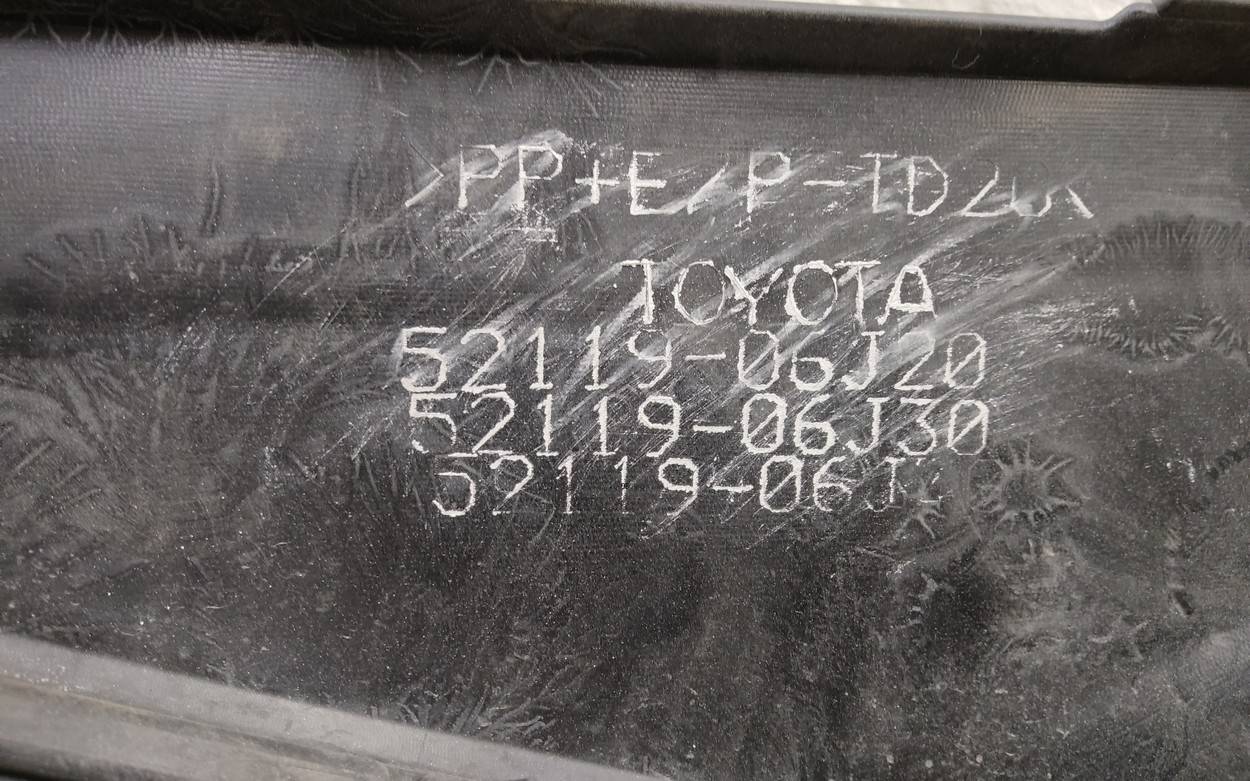 >PP+E/P-TD20<
TOYOTA
52119-06J20
52119-06J30
52119-06J